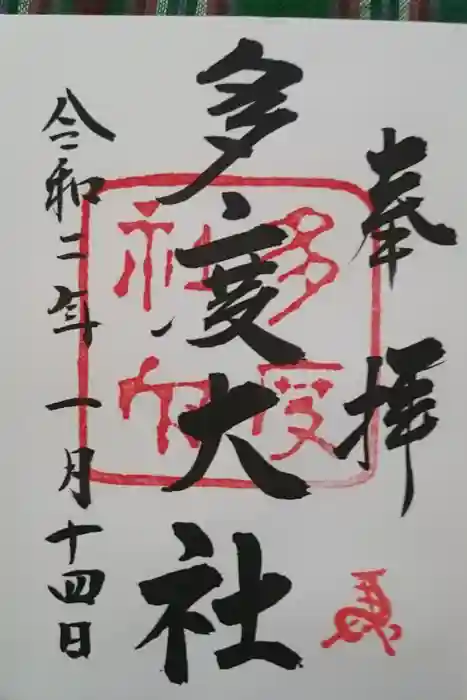 奉拝
多度大社
令和二年一月十四日
多度
社印